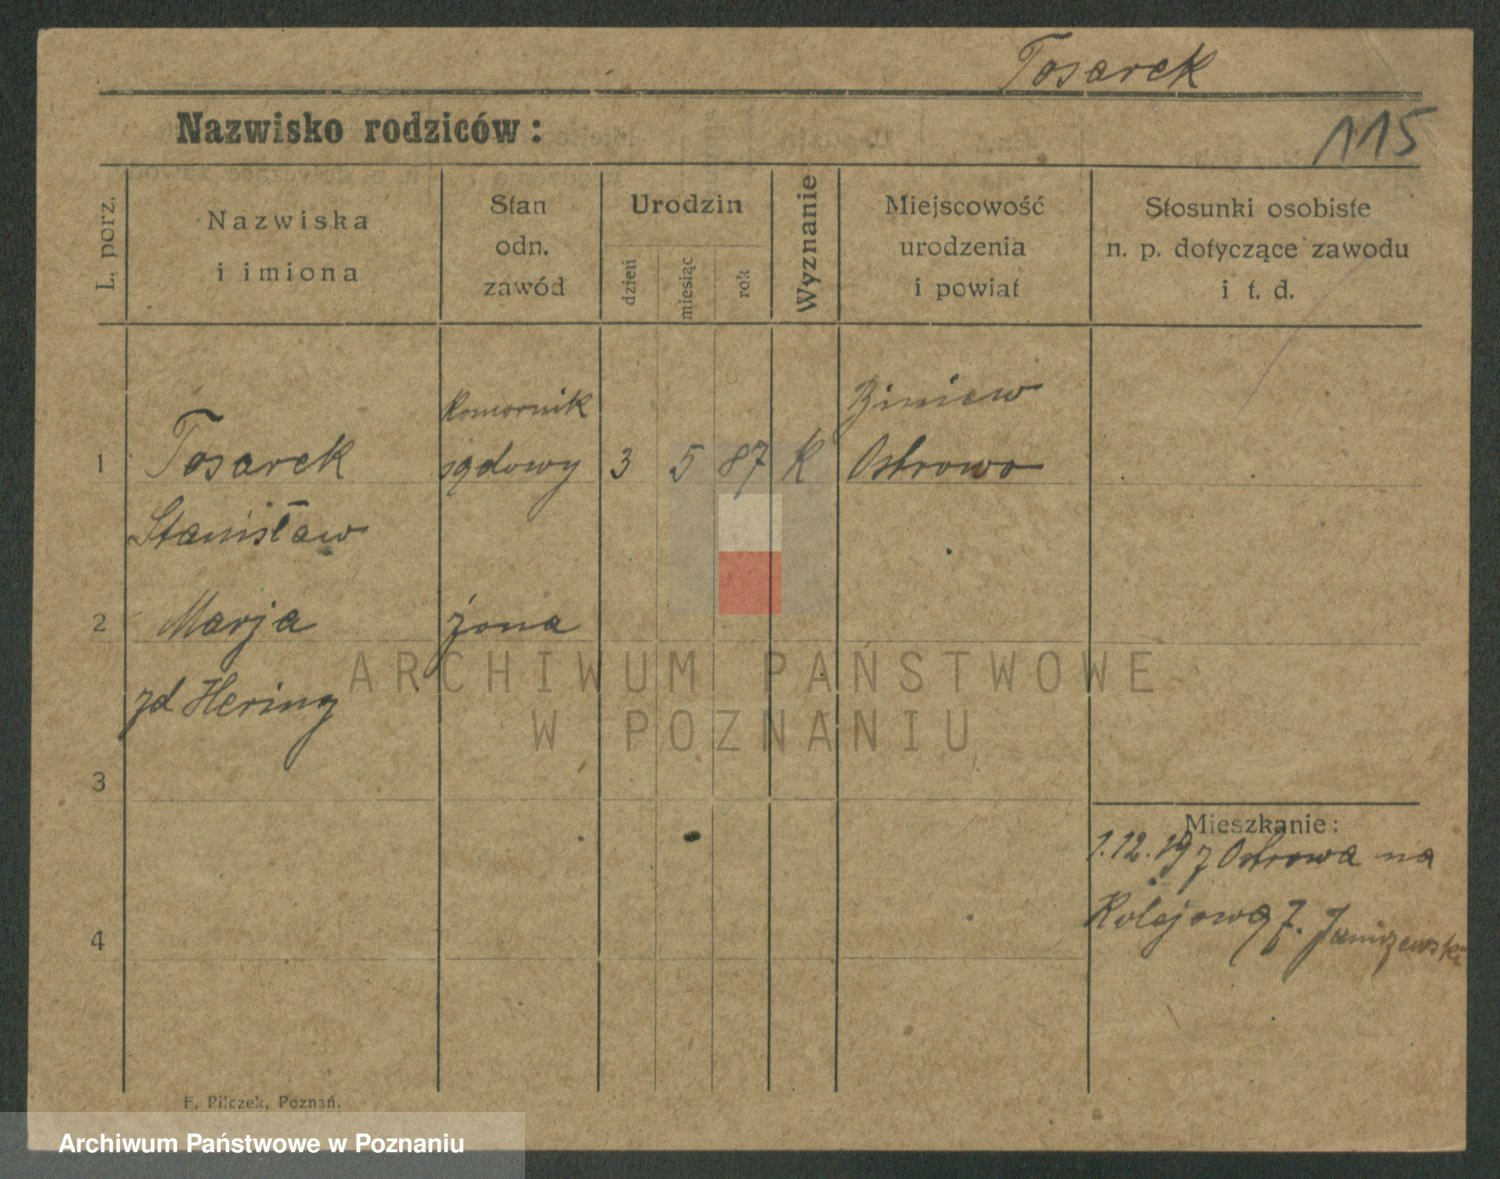 Tosarek
Nazwisko rodziców:
115
L. porz.
Nazwiska
i imiona
Stan
odn.
zawód
Urodzin
dzień
miesiąc
rok
Wyznanie
Miejscowość
urodzenia
i powiat
Stosunki osobiste
n. p. dotyczące zawodu
i t. d.
1
Tosarek
Stanisław
komornik
sądowy
3
5
87
k
Biniew
Ostrowo
2
Marja
zd Hering
żona
3
4
Mieszkanie:
1.12.19 z Ostrowa na
Kolejową 7. Janiszewski
ARCHIWUM PAŃSTWOWE
W POZNANIU
F. Pilczek, Poznań.
Archiwum Państwowe w Poznaniu